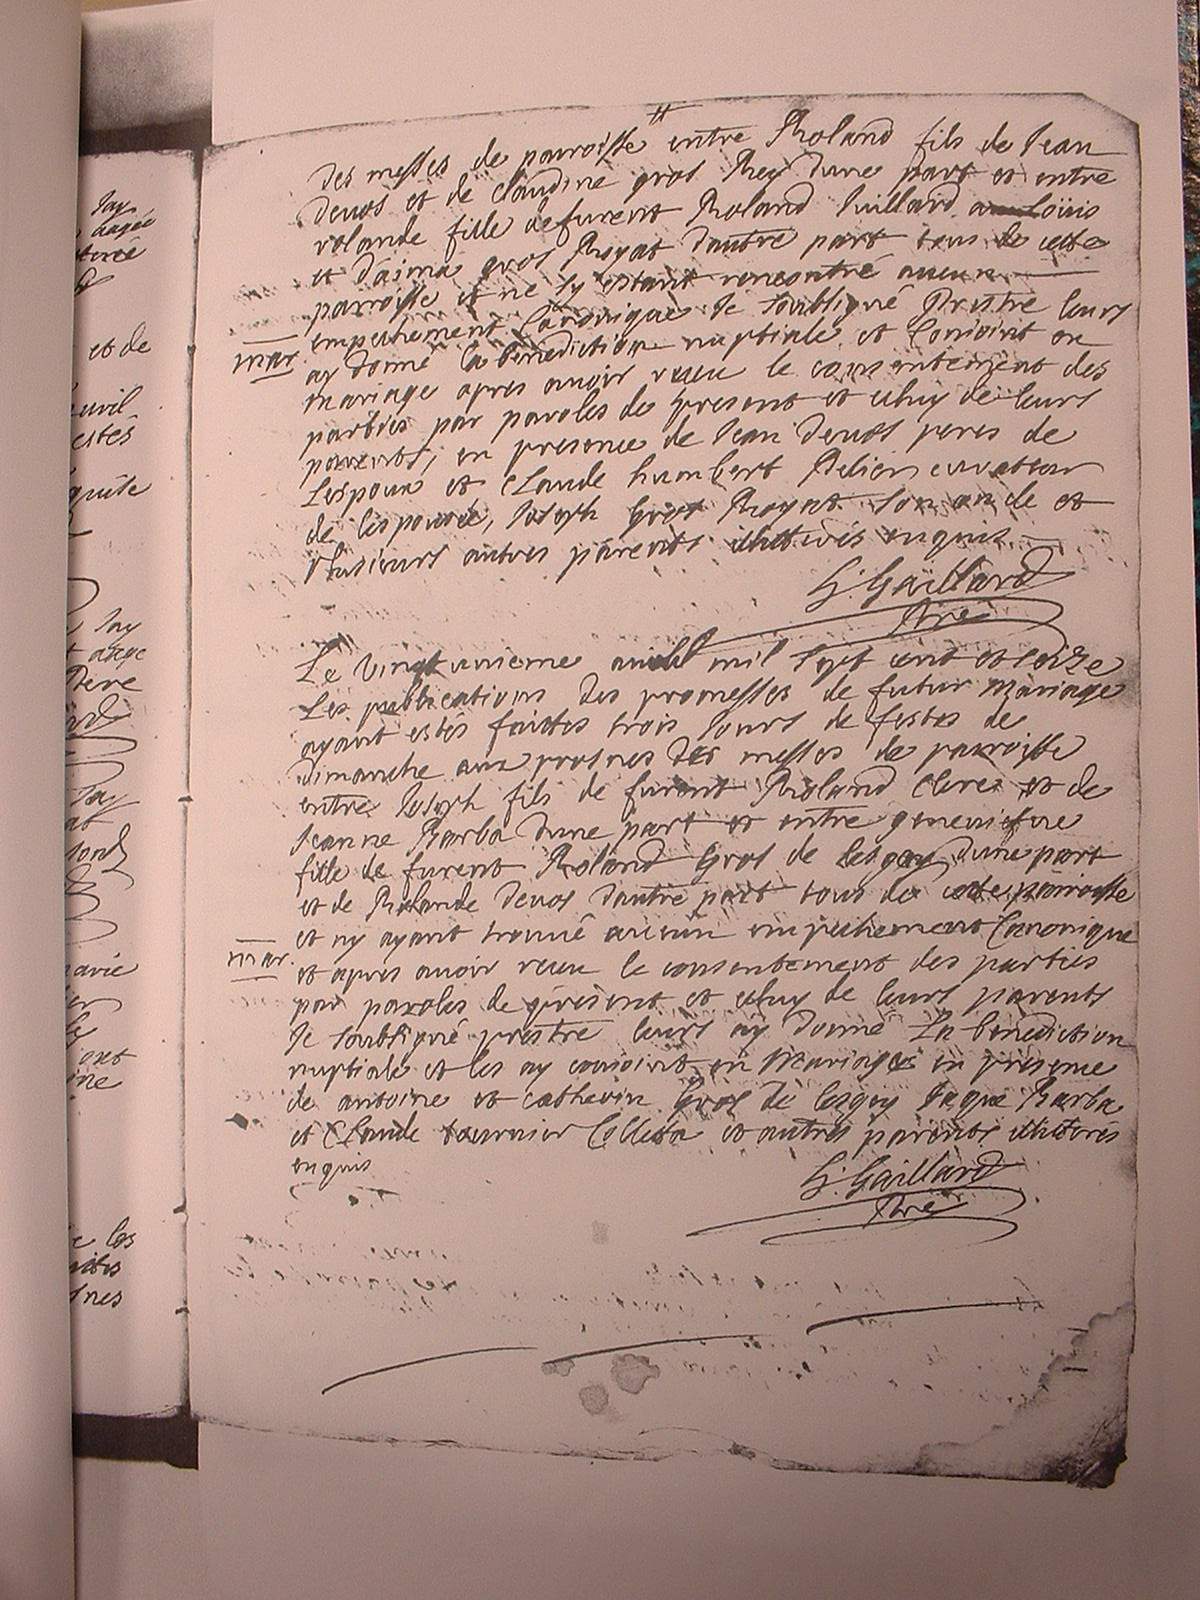 Jay
agée
et de
avril
estés
Jay
avie
les
des messes de parroisse entre Roland fils de Jean
devos et de claudine gros Rey dune part et entre
rolande fille defurent Roland Juillard Loüis
et daima gros Royat dautre part tous de cette
parroisse et ne sy estant rencontré aucun
empechement Canonique Je soubsigné Prestre leurs
mar. ay donné la benediction nuptiale et Conioint en
mariage apres avoir receu le consentement des
parties par paroles de present et celuy de leurs
parents, en presence de Jean devos peres de
Lespoux et Claude humbert curateur
de lespouse, Joseph Gros Royat son oncle et
plusieurs autres parents illiterés enquis.
G. Gaillard
Pre
Le vingtunieme avril mil sept cent et seize
Les publications des promesses de futur mariage
ayant estés faittes trois Jours de festes de
dimanche aux prosnes des messes de parroisse
entre Joseph fils de furent Roland Clerc et de
Jeanne Barba dune part et entre genevieve
fille de furent Roland Gros de dune part
et de Rolande devos dautre part tous de cette parroisse
et ny ayant trouvé aucun empechement Canonique
mar. et apres avoir receu le consentement des parties
par paroles de present et celuy de leurs parents
Je soubsigné prestre leurs ay donné La benediction
nuptiale et les ay conioint en Mariage en presence
de antoine et catherin Gros de Jaque Barba
et Claude tournier Colleta et autres parents illiterés
enquis
G. Gaillard
Pre